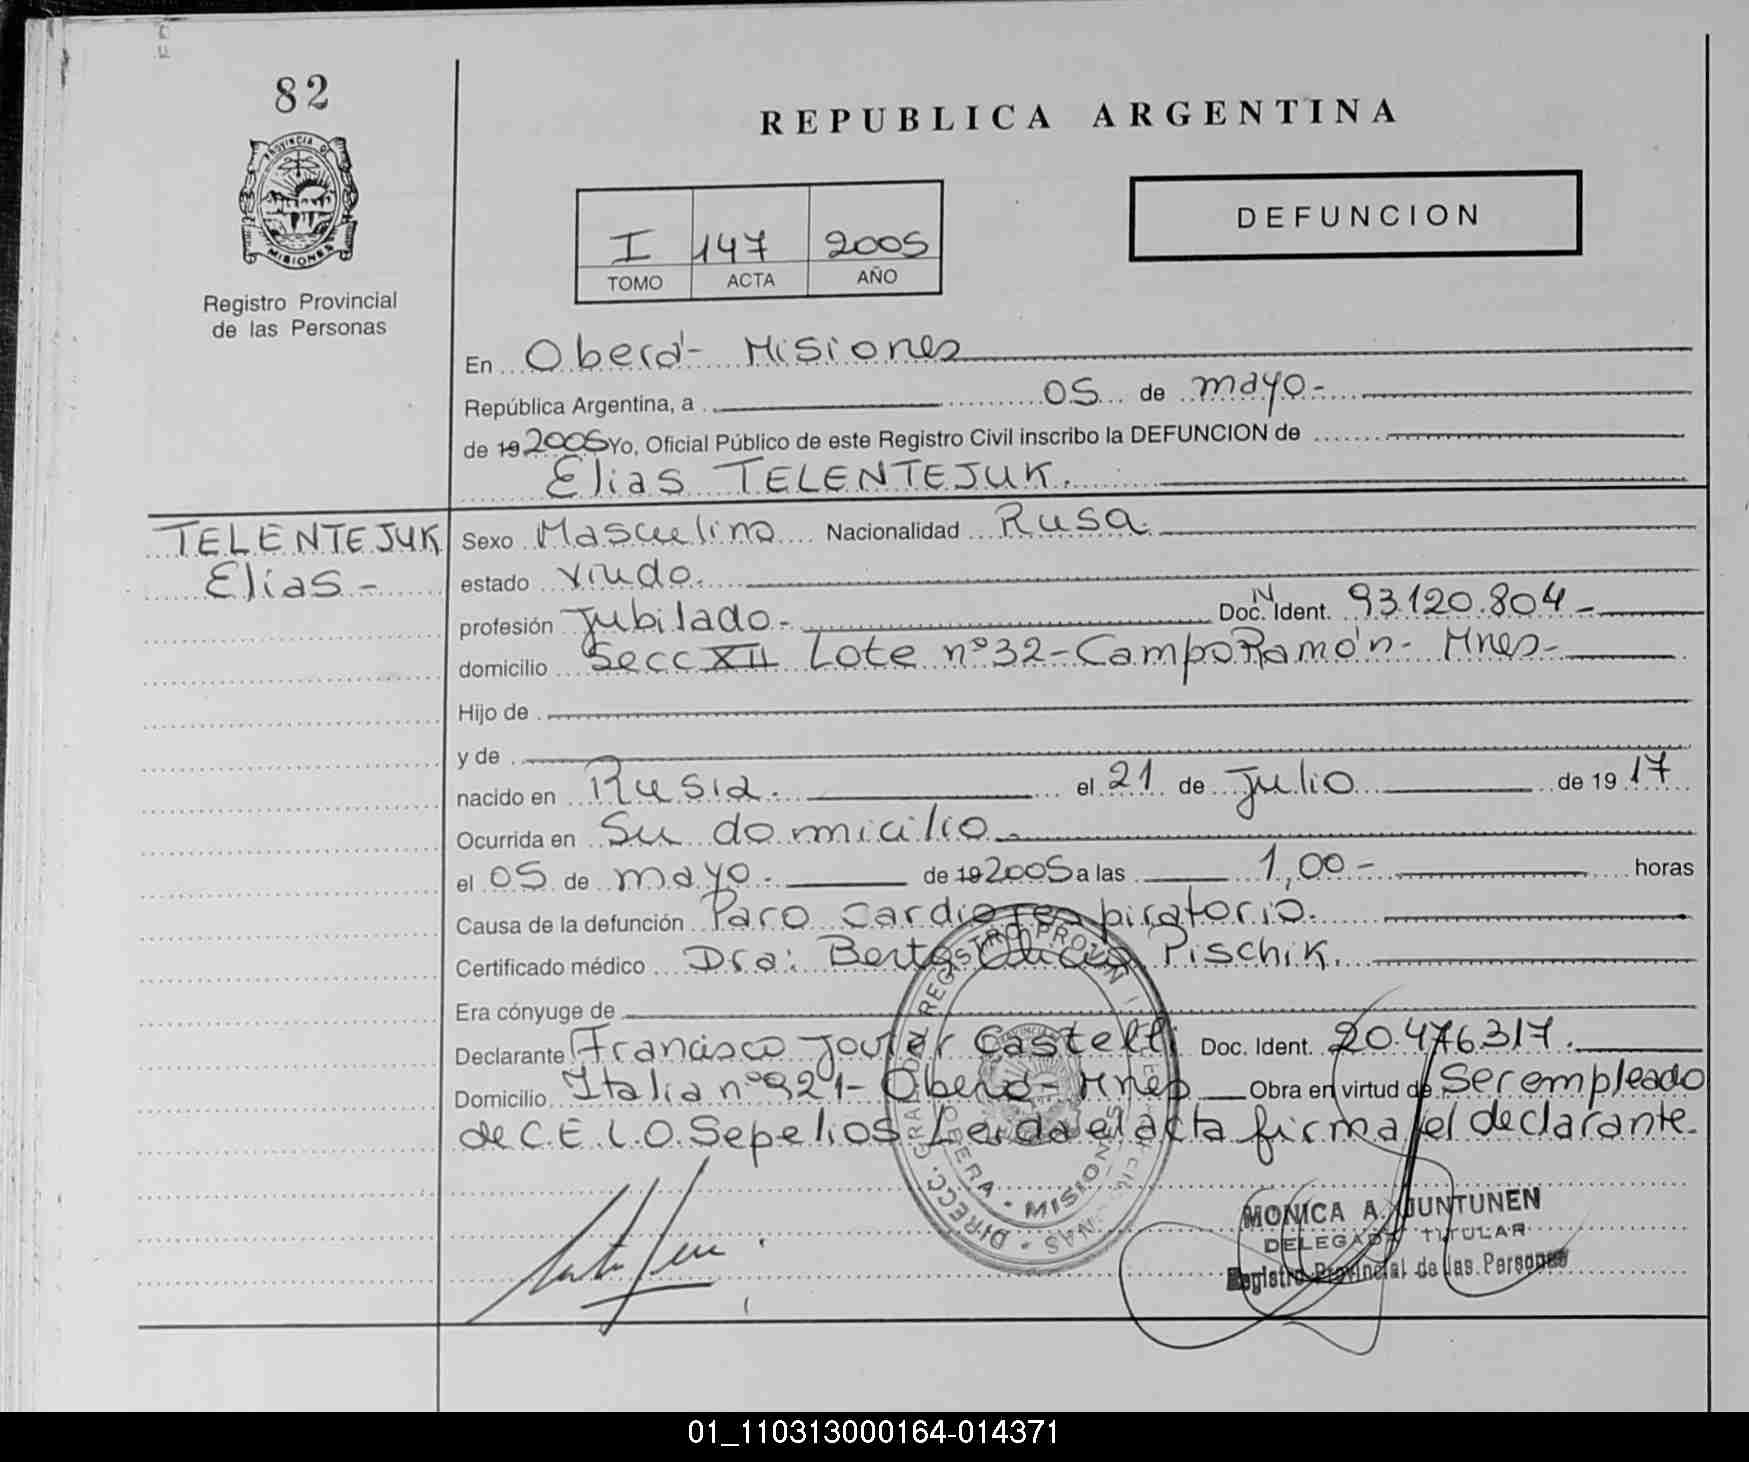 82
REPUBLICA ARGENTINA
PROVINCIA DE
MISIONES
Registro Provincial
de las Personas
I 147 2005
TOMO ACTA AÑO
DEFUNCION
En Oberá- Misiones
República Argentina, a 05 de mayo-
de 19 2005 Yo, Oficial Público de este Registro Civil inscribo la DEFUNCION de
Elias TELENTEJUK.
TELENTEJUK
Elias-
Sexo Masculino Nacionalidad Rusa.
estado viudo.
profesión Jubilado- Doc. N Ident. 93.120.804-
domicilio Secc XII Lote nº32-Campo Ramón- Mnes-
Hijo de
y de
nacido en Rusia. el 21 de Julio de 19 17
Ocurrida en Su domicilio-
el 05 de mayo. de 19 2005 a las 1,00- horas
Causa de la defunción Paro Cardiorespiratorio.
Certificado médico Dra: Berta Pischik.
Era cónyuge de
Declarante Francisco Javier Castelli Doc. Ident. 20.476317.
Domicilio Italia nº921- Oberá- Mnes Obra en virtud de Ser empleado
de C.E.L.O. Sepelios Leída el acta firma el declarante.
OBERA - MISIONES
MONICA A. JUNTUNEN
DELEGADA TITULAR
Registro Provincial de las Personas
01_110313000164-014371